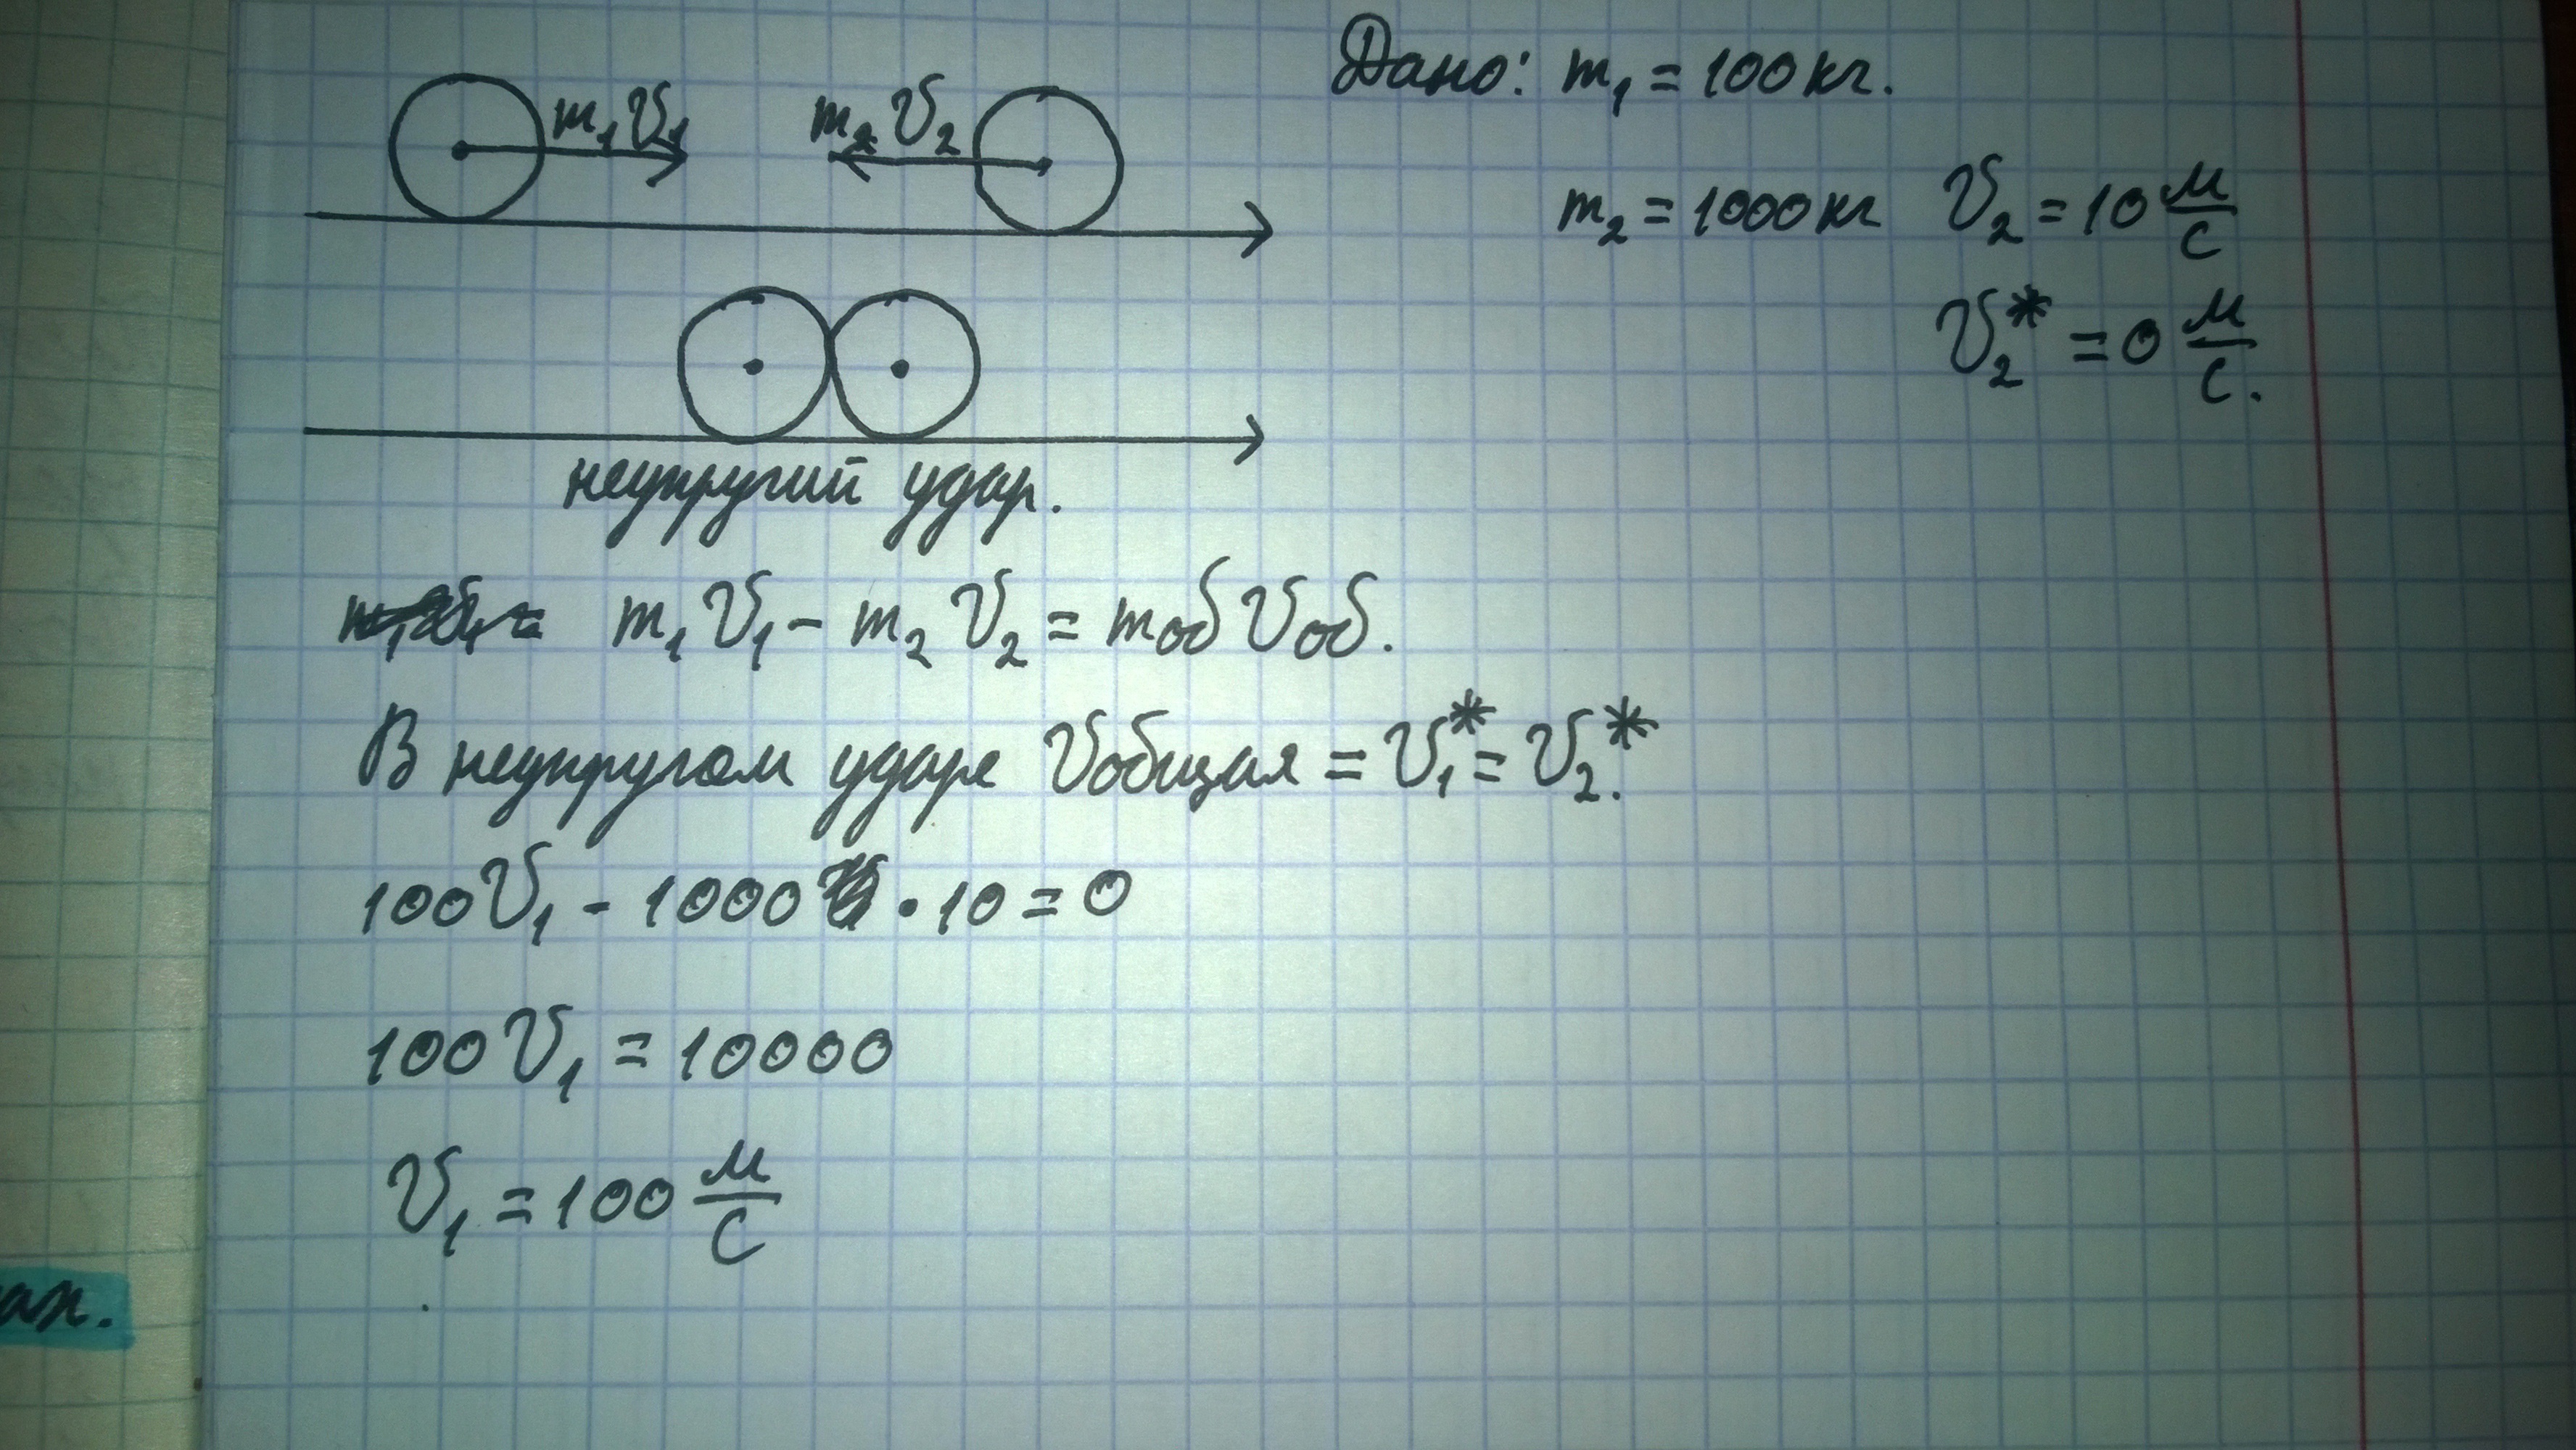 Дано: m₁ = 100 кг.
m₁V₁ m₂V₂
m₂ = 1000 кг V₂ = 10 м/с
V₂* = 0 м/с.
неупругий удар.
m₁V₁ - m₂V₂ = mоб Vоб.
В неупругом ударе Vобщая = V₁* = V₂*.
100V₁ - 1000 · 10 = 0
100V₁ = 10000
V₁ = 100 м/с